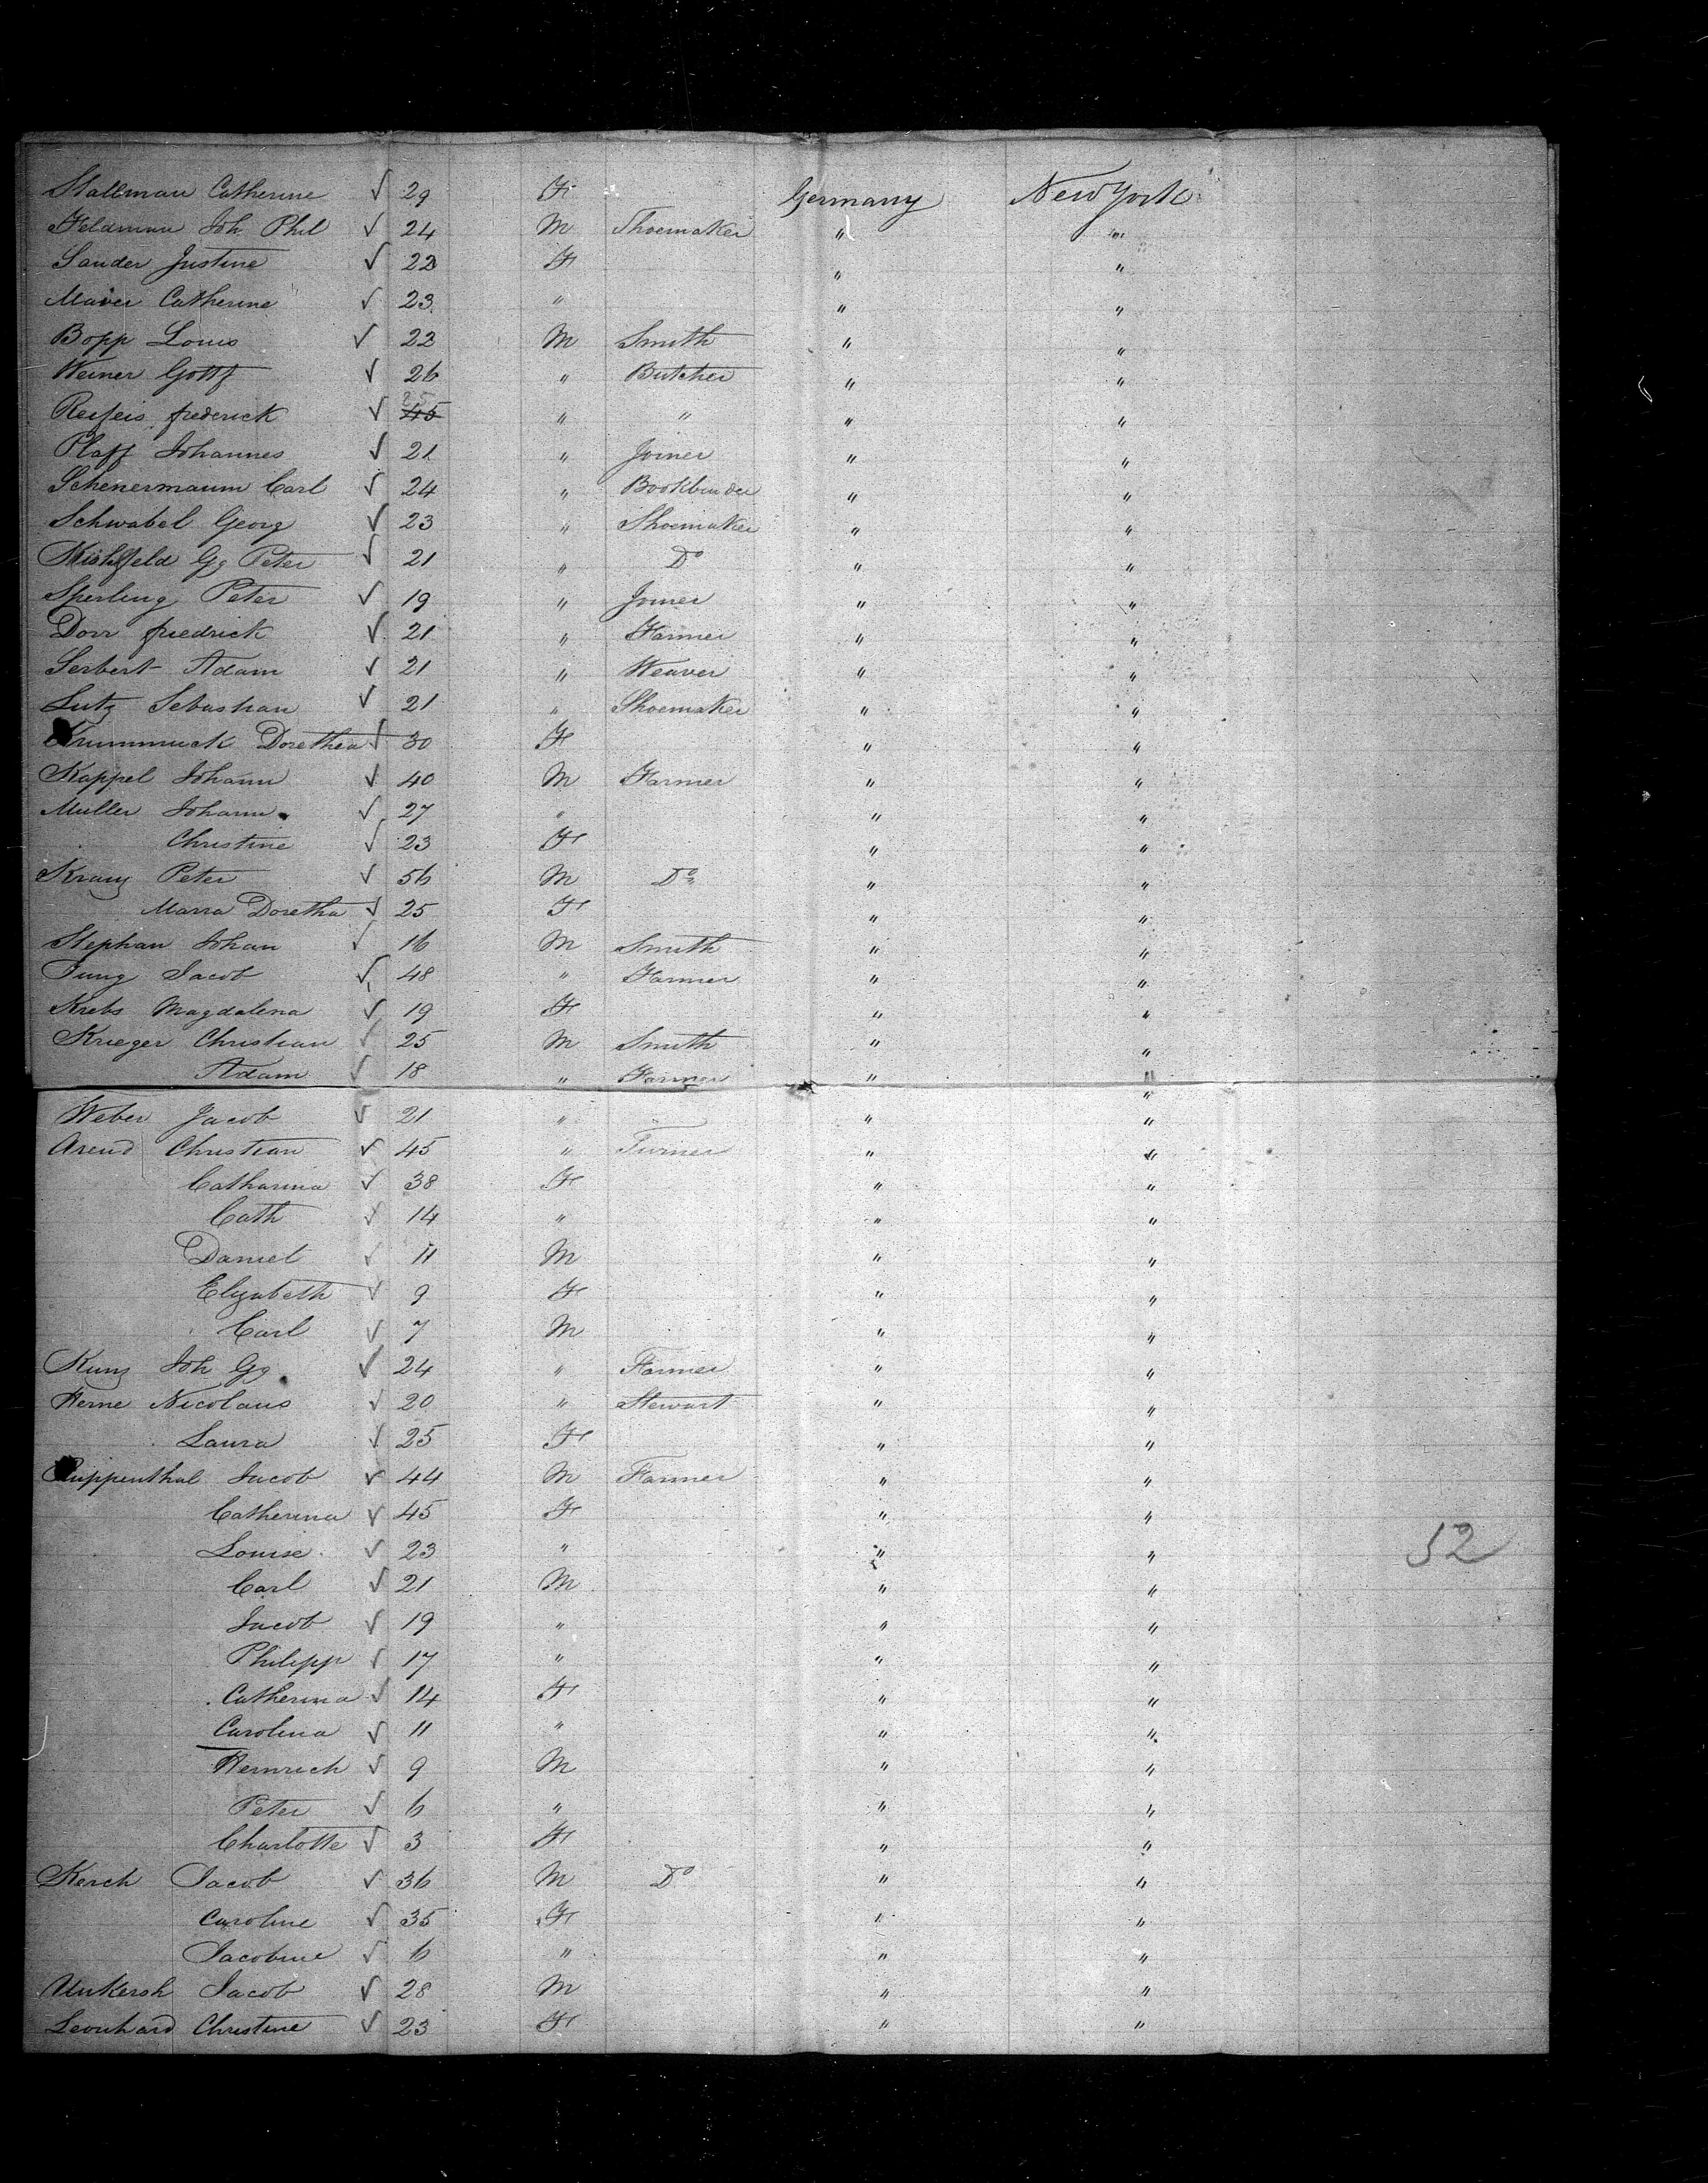 Stallman Catherine √ 29 F Germany New York
Feldman Joh Phil √ 24 M Shoemaker " "
Sander Justine √ 22 F " "
Catherine √ 23 " " "
Bopp Louis √ 22 M Smith " "
Weiner Gottf √ 26 " Butcher " "
frederick √ 45 25 " " " "
Pfaff Johannes √ 21 " Joiner " "
Schenermaum Carl √ 24 " Bookbinder " "
Schwabel Georg √ 23 " Shoemaker " "
Gg Peter √ 21 " Do " "
Sperling Peter √ 19 " Joiner " "
Dorr fredrick √ 21 " Farmer " "
Serbert Adam √ 21 " Weaver " "
Lutz Sebastian √ 21 " Shoemaker " "
Krummuck Dorethea √ 30 F " "
Kappel Johann √ 40 M Farmer " "
Muller Johann √ 27 " " "
Christine √ 23 F " "
Kranz Peter √ 56 M Do " "
Maria Doretha √ 25 F " "
Stephan Johan √ 16 M Smith " "
Jung Jacob √ 48 " Farmer " "
Krebs Magdalena √ 19 F " "
Krieger Christian √ 25 M Smith " "
Adam √ 18 " Farmer " "
"
Weber Jacob √ 21 " " "
Arend Christian √ 45 " Turner " "
Catharina √ 38 F " "
Cath √ 14 " " "
Daniel √ 11 M " "
Elizabeth √ 9 F " "
Carl √ 7 M " "
Kunz Joh Gg √ 24 " Farmer " "
Herne Nicolaus √ 20 " Stewart " "
Laura √ 25 F " "
Ruppenthal Jacob √ 44 M Farmer " "
Catherina √ 45 F " "
Louise √ 23 " " "
52
Carl √ 21 M " "
Jacob √ 19 " " "
Philipp √ 17 " " "
Catherina √ 14 F " "
Carolina √ 11 " " "
Heinrich √ 9 M " "
Peter √ 6 " " "
Charlotte √ 3 F " "
Kerch Jacob √ 36 M Do " "
Caroline √ 35 F " "
Jacobine √ 6 " " "
Jacob √ 28 M " "
Leonhard Christine √ 23 F " "